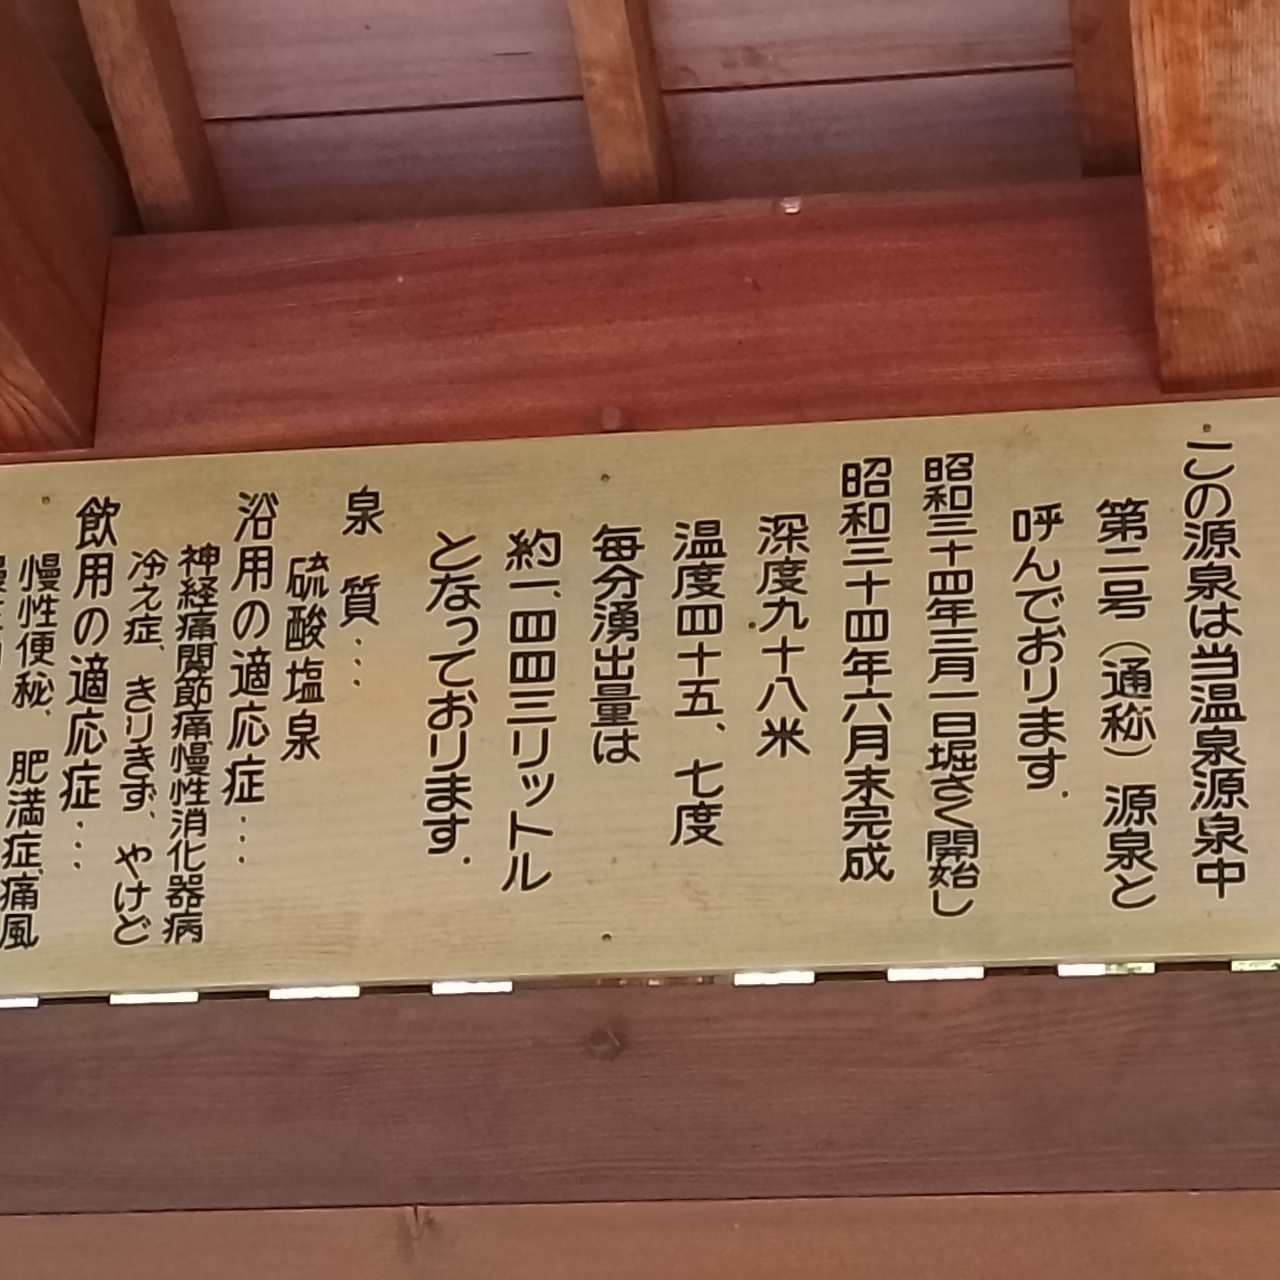 この源泉は当温泉源泉中
第二号（通称）源泉と
呼んでおります.
昭和三十四年三月一日堀さく開始し
昭和三十四年六月末完成
深度九十八米
温度四十五、七度
毎分湧出量は
約一、四四三リットル
となっております.
泉質…
硫酸塩泉
浴用の適応症…
神経痛関節痛慢性消化器病
冷え症、きりきず、やけど
飲用の適応症…
慢性便秘、肥満症、痛風